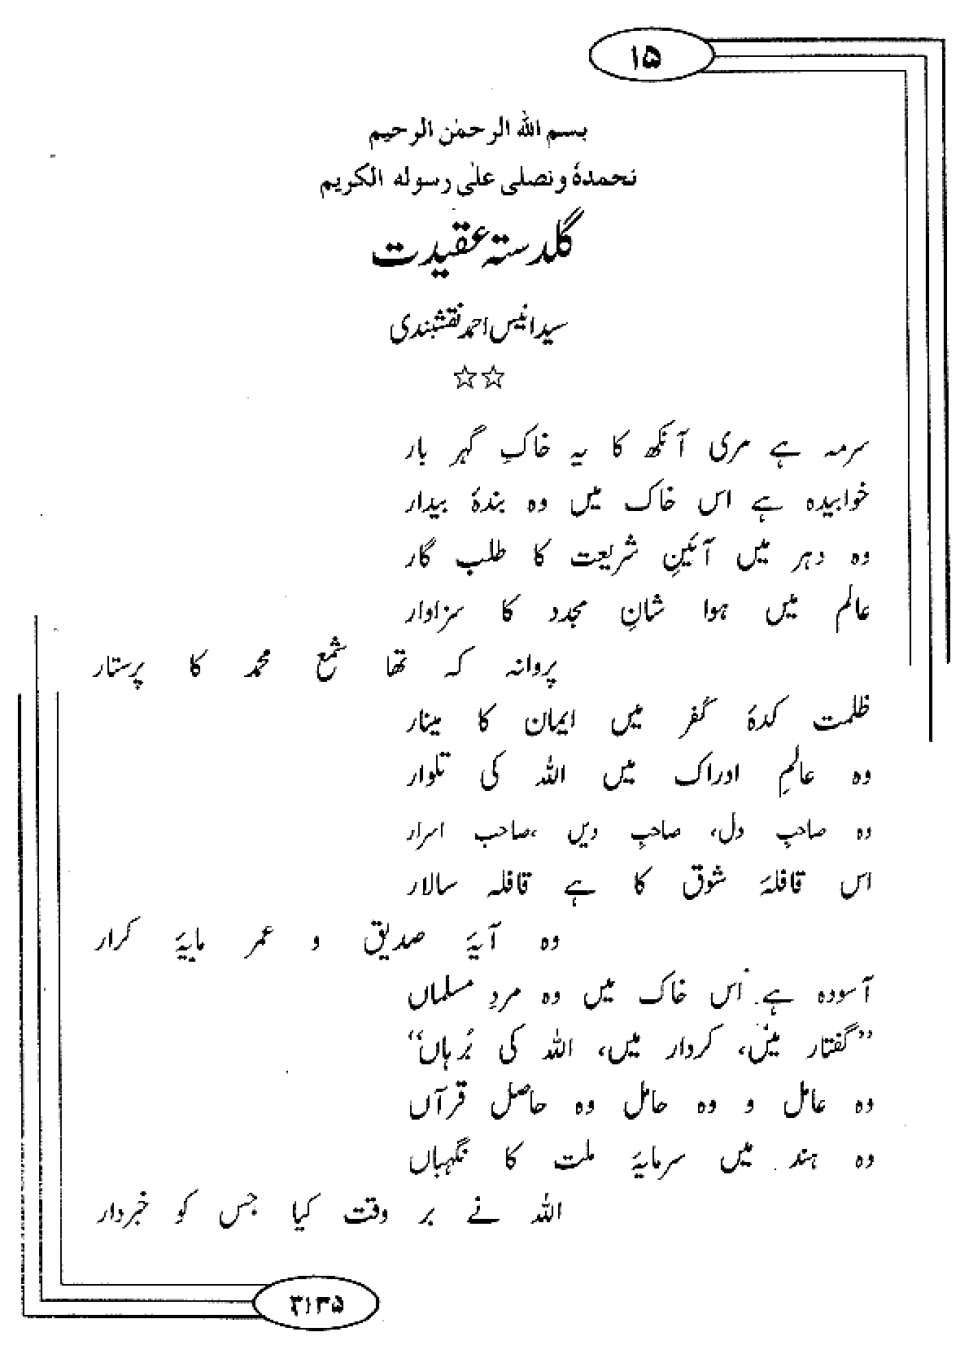 ۱۵
بسم الله الرحمٰن الرحیم
نحمدہٗ ونصلی علیٰ رسوله الکریم
گلدستہ عقیدت
سید انیس احمد نقشبندی
☆☆
سرمہ ہے مری آنکھ کا یہ خاکِ گہر بار
خوابیدہ ہے اس خاک میں وہ بندۂ بیدار
وہ دہر میں آئینِ شریعت کا طلب گار
عالم میں ہوا شانِ مجدد کا سزاوار
پروانہ کہ تھا شمعِ محمد کا پرستار
ظلمت کدۂ کُفر میں ایمان کا مینار
وہ عالمِ ادراک میں اللہ کی تلوار
وہ صاحبِ دل، صاحبِ دیں ،صاحب اسرار
اس قافلۂ شوق کا ہے قافلہ سالار
وہ آیۂ صدیق و عمر مایۂ کرار
آسودہ ہے اس خاک میں وہ مردِ مسلماں
”گفتار میں، کردار میں، اللہ کی بُرہاں“
وہ عامل و وہ حامل وہ حاصل قرآں
وہ ہند میں سرمایۂ ملت کا نگہباں
اللہ نے بر وقت کیا جس کو خبردار
۳۱۳۵